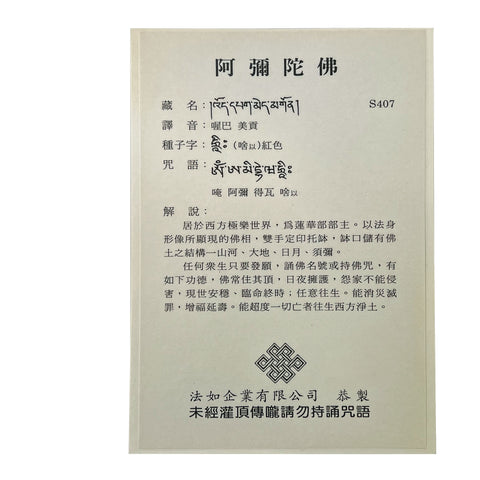 阿彌陀佛
藏　名：།འོད་དཔག་མེད་མགོན། S407
譯　音：喔巴 美貢
種子字：ཧྲཱིཿ (啥以)紅色
咒　語：ཨོཾ་ཨ་མི་དྷེ་ཝ་ཧྲཱིཿ
唵 阿彌 得瓦 啥以
解　說：
居於西方極樂世界，爲蓮華部部主。以法身
形像所顯現的佛相，雙手定印托缽，缽口儲有佛
土之結構一山河、大地、日月、須彌。
任何衆生只要發願，誦佛名號或持佛咒，有
如下功德，佛常住其頂，日夜擁護，怨家不能侵
害，現世安穩、臨命終時；任意往生。能消災滅
罪，增福延壽。能超度一切亡者往生西方淨土。
法如企業有限公司　恭製
未經灌頂傳嚨請勿持誦咒語